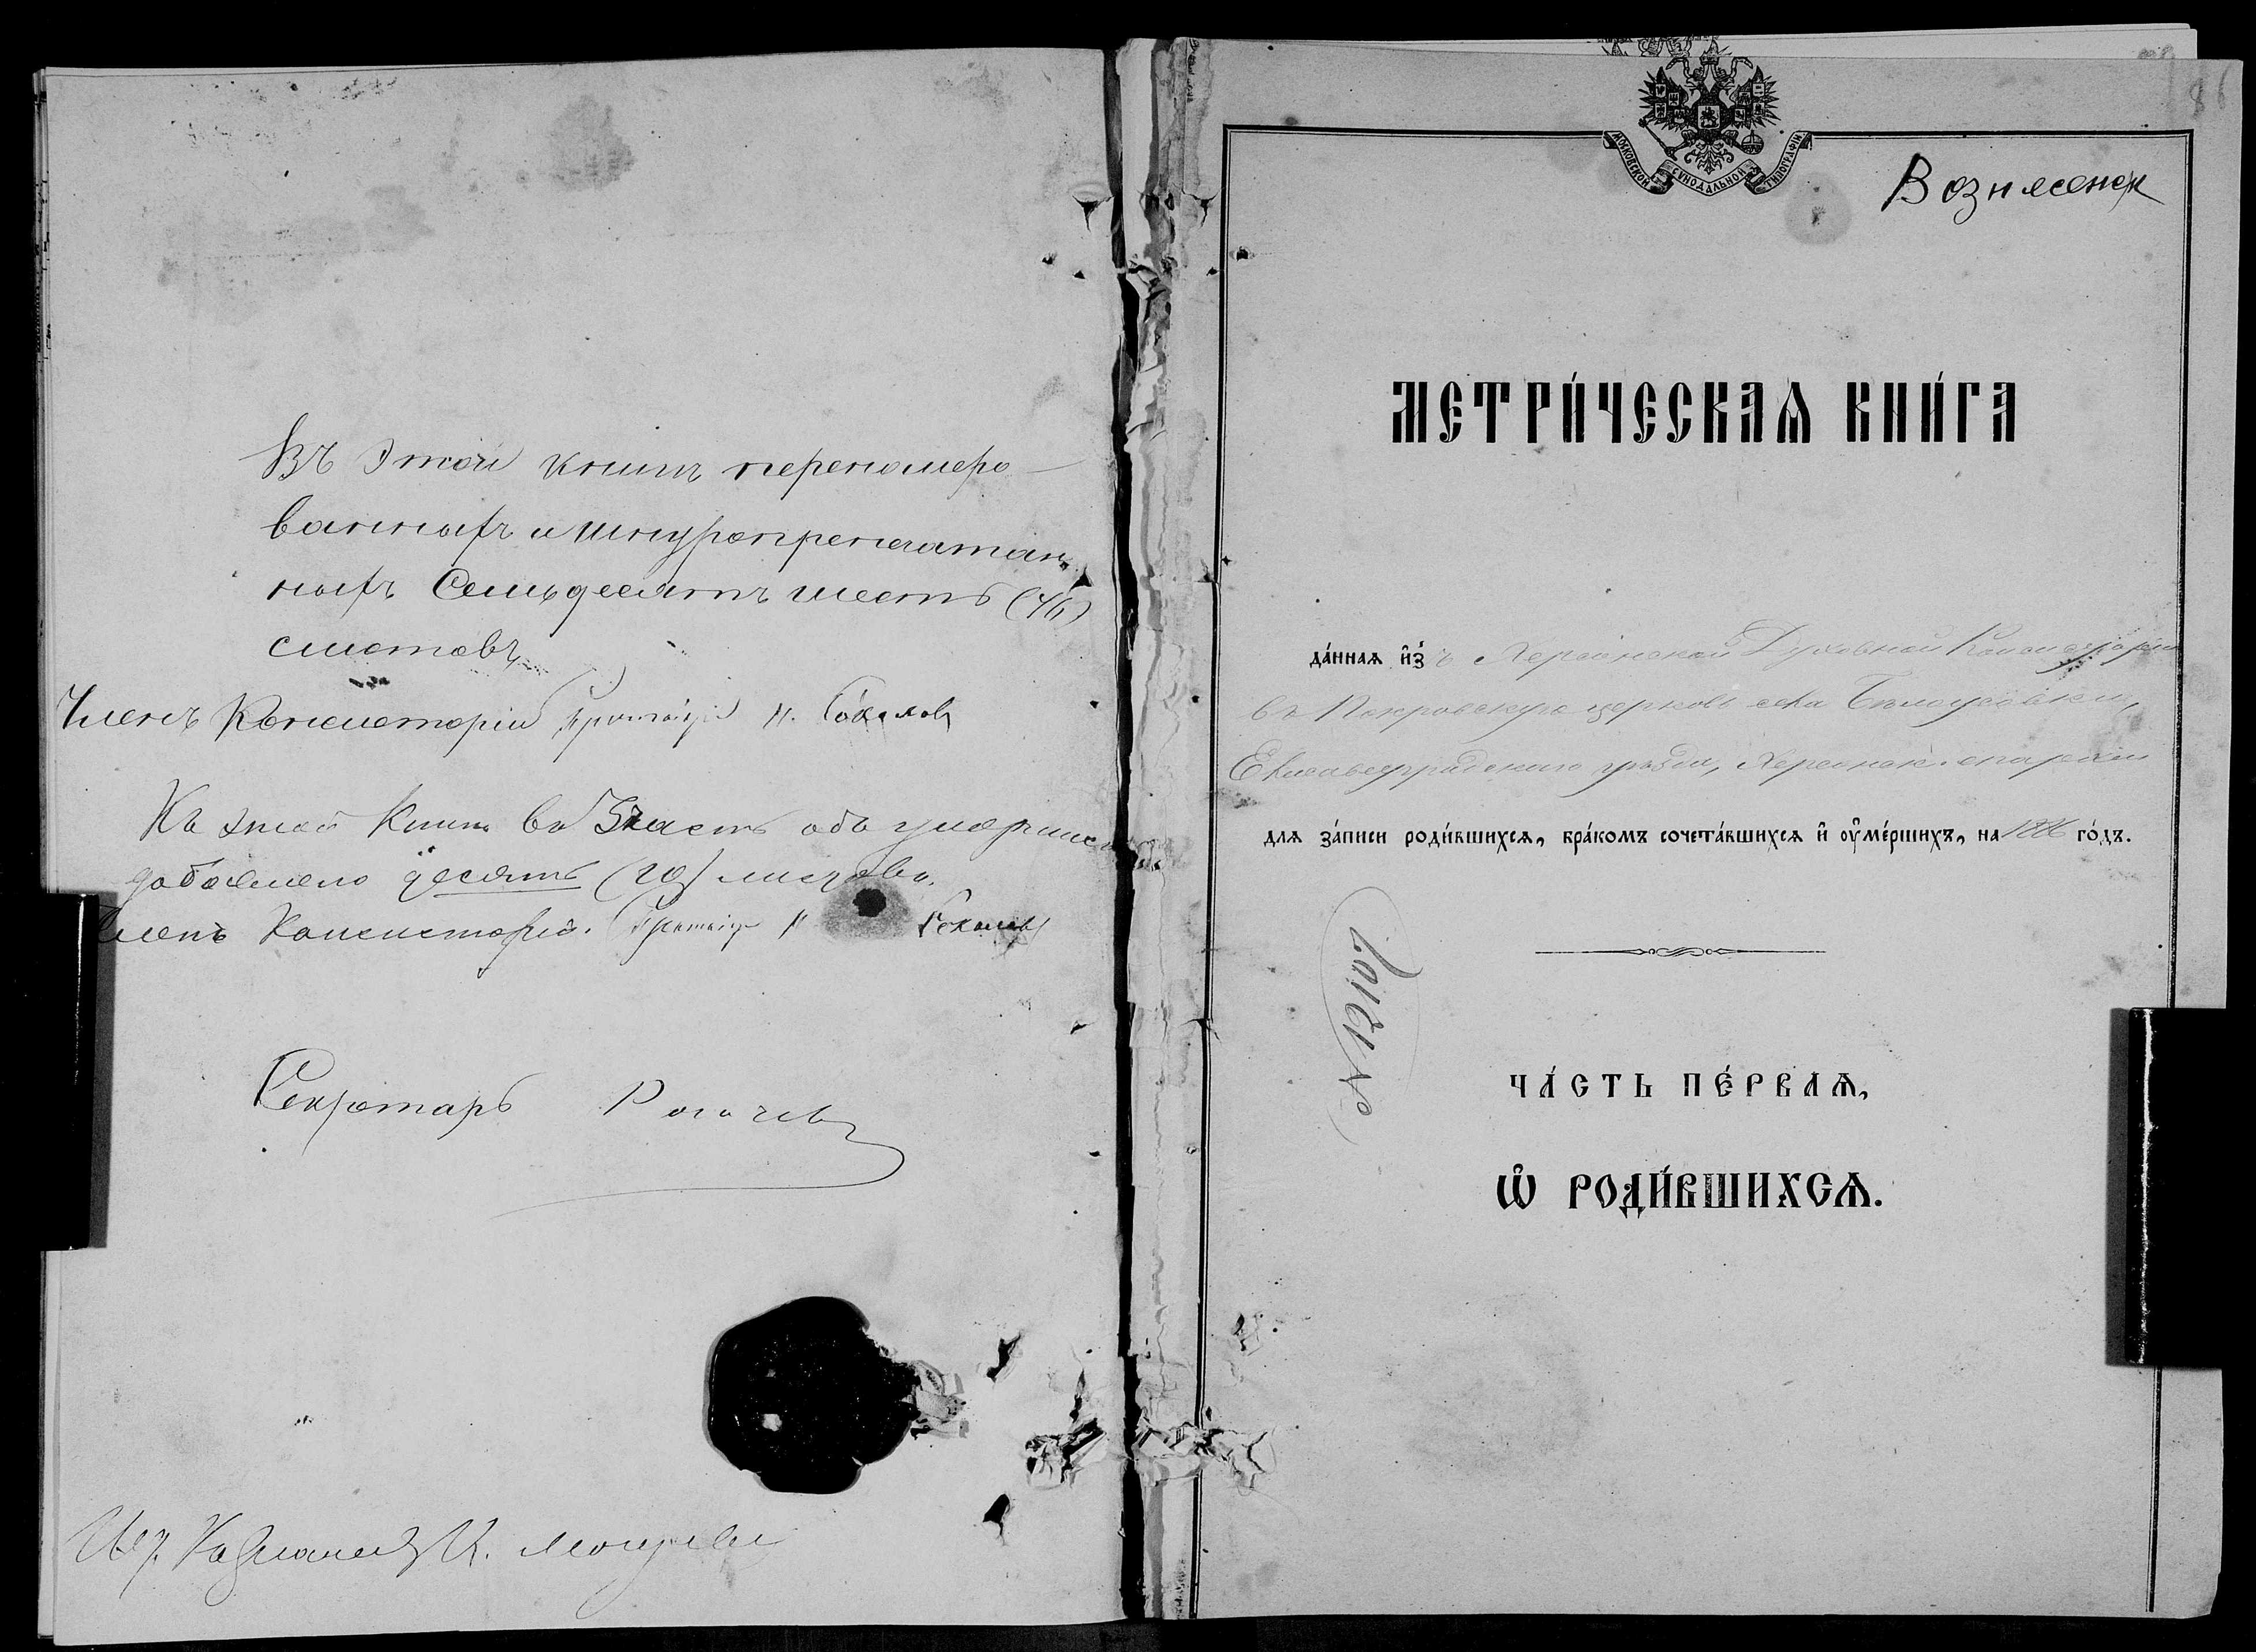 Въ этой книгѣ перенумеро-
ванныхъ и шнуропрепечатан-
ныхъ Семьдесятъ шесть (76)
листовъ
Членъ Консисторіи Протоіерей
Къ этой книгѣ въ 3 часть объ умершихъ
добавлено десять (10) листовъ.
Членъ Консисторіи. Протоіерей
Секретарь
86
МОСКОВСКОЙ СѴНОДАЛЬНОЙ ТИПОГРАФІИ
Вознесенск
МЕТРИ́ЧЕСКАѦ КНИ́ГА
да́ннаѧ и҆з̾ Херсонской Духовной Консисторіи
въ Покровскую церковь села Бѣлоусовки,
Елисаветградскаго уѣзда, Херсонск. епархіи
длѧ за́писи роди́вшихсѧ, бра́комъ сочета́вшихсѧ и҆ ᲂу҆ме́ршихъ, на 1886 го́дъ.
№ 12107
ЧА́СТЬ ПЕ́РВАѦ,
Ѽ РОДИ́ВШИХСѦ.